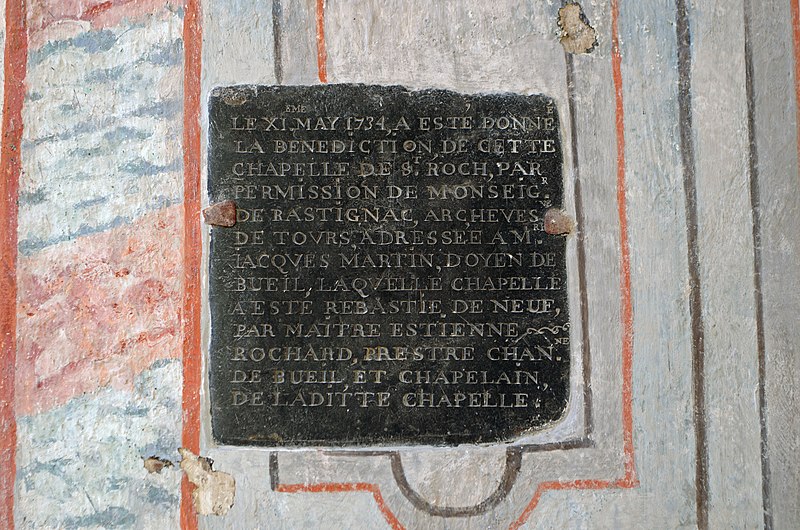 LE XI.EME MAY 1734, A ESTÉ DONNÉ
LA BENEDICTION, DE CETTE
CHAPELLE DE St. ROCH, PAR
PERMISSION DE MONSEIG.R
DE RASTIGNAC, ARCHEVES
DE TOVRS ADRESSEE A M.RE
JACQVES MARTIN, DOYEN DE
BUEIL, LAQVELLE CHAPELLE
A ESTE REBASTIE DE NEUF,
PAR MAITRE ESTIENNE
ROCHARD, PRESTRE CHAN.NE
DE BUEIL, ET CHAPELAIN,
DE LADITTE CHAPELLE.